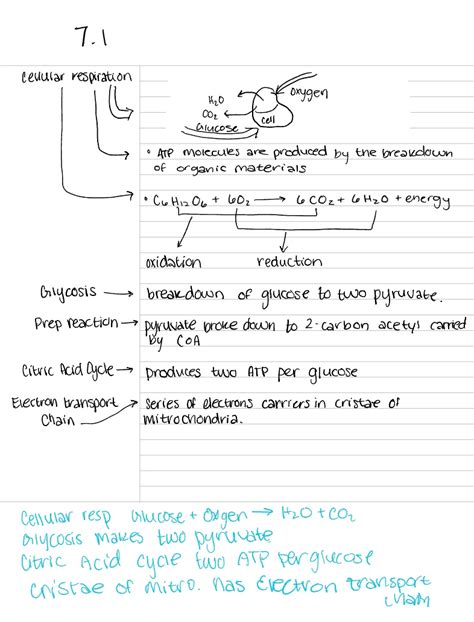 7.1
Cellular respiration
oxygen
H₂O
CO₂
cell
Glucose
• ATP molecules are produced by the breakdown
of organic materials
• C₆H₁₂O₆ + 6O₂ → 6CO₂ + 6H₂O + energy
oxidation reduction
Glycosis → breakdown of glucose to two pyruvate.
Prep reaction → pyruvate broke down to 2-carbon acetyl carried
by CoA
Citric Acid Cycle → produces two ATP per glucose
Electron transport → series of electrons carriers in cristae of
Chain mitrochondria.
Cellular resp Glucose + Oxgen → H₂O + CO₂
Glycosis makes two pyruvate
Citric Acid cycle two ATP per glucose
cristae of mitro. has Electron transport
chain